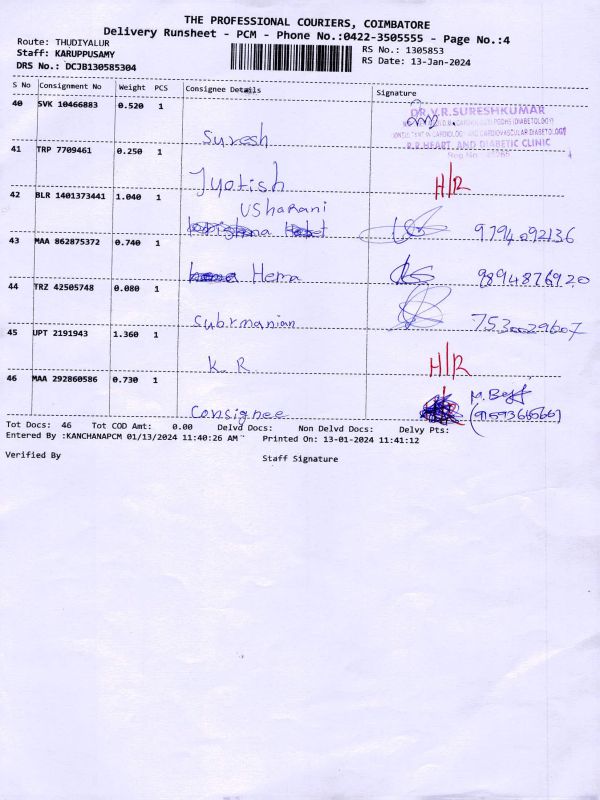 THE PROFESSIONAL COURIERS, COIMBATORE
Delivery Runsheet - PCM - Phone No.:0422-3505555 - Page No.:4
Route: THUDIYALUR
RS No.: 1305853
Staff: KARUPPUSAMY
RS Date: 13-Jan-2024
DRS No.: DCJB130585304
S No Consignment No Weight PCS Consignee Details Signature
40 SVK 10466883 0.520 1
DR.V.R.SURESHKUMAR
CARDIOLOGY AND CARDIOVASCULAR DIABETOLOGY
HEART AND DIABETIC CLINIC
Suresh
41 TRP 7709461 0.250 1
Jyotish H/R
42 BLR 1401373441 1.040 1
USharani
9794092136
43 MAA 862875372 0.740 1
Hema 9894876920
44 TRZ 42505748 0.080 1
Subrmanian 7530029607
45 UPT 2191943 1.360 1
K.R H/R
46 MAA 292860586 0.730 1
Consignee
Tot Docs: 46 Tot COD Amt: 0.00 Delvd Docs: Non Delvd Docs: Delvy Pts:
Entered By :KANCHANAPCM 01/13/2024 11:40:26 AM Printed On: 13-01-2024 11:41:12
Verified By Staff Signature